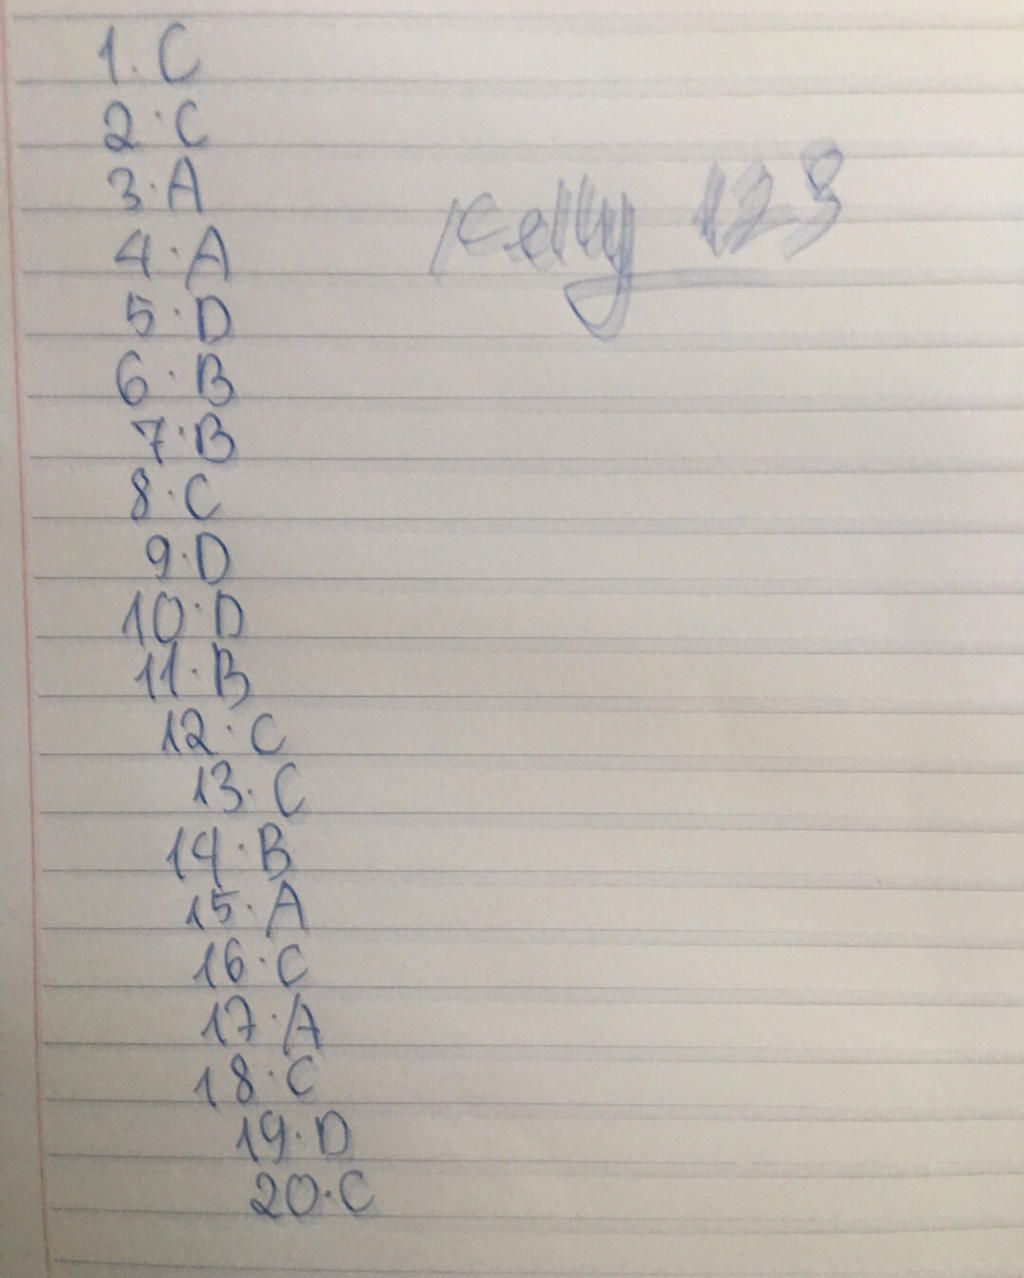 1. C
2. C
3. A
Kelly 123
4. A
5. D
6. B
7. B
8. C
9. D
10. D
11. B
12. C
13. C
14. B
15. A
16. C
17. A
18. C
19. D
20. C